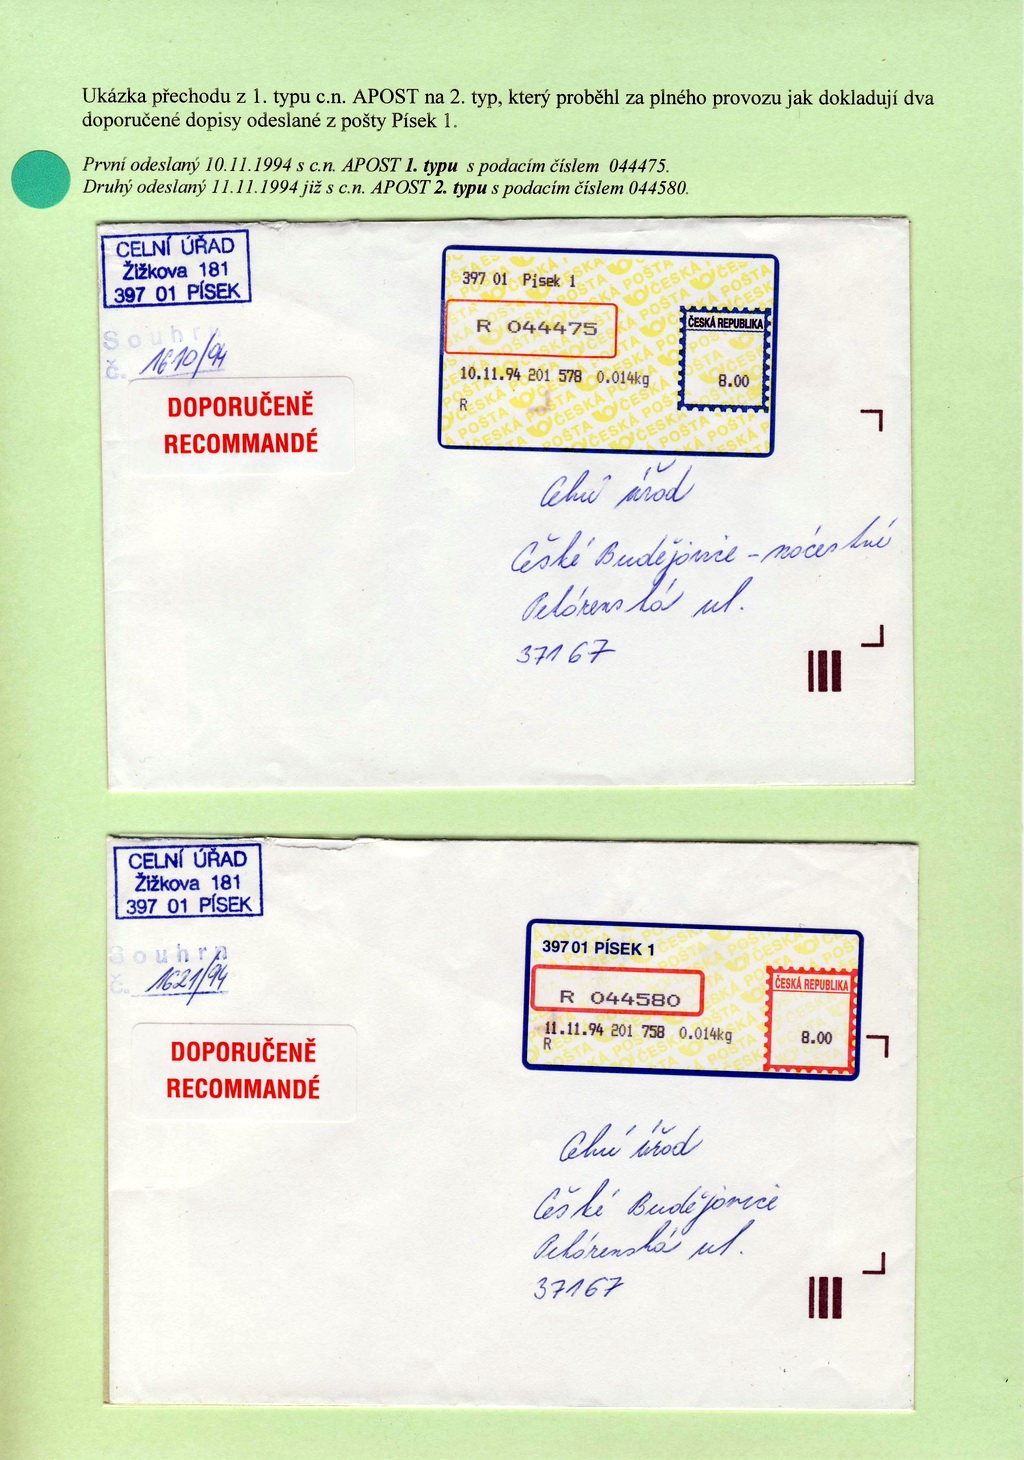 Ukázka přechodu z 1. typu c.n. APOST na 2. typ, který proběhl za plného provozu jak dokladují dva
doporučené dopisy odeslané z pošty Písek 1.
První odeslaný 10.11.1994 s c.n. APOST 1. typu s podacím číslem 044475.
Druhý odeslaný 11.11.1994 již s c.n. APOST 2. typu s podacím číslem 044580.
CELNÍ ÚŘAD
Žižkova 181
397 01 PÍSEK
Souhrn
č. 1610/94
DOPORUČENĚ
RECOMMANDÉ
397 01 Písek 1
R 044475
ČESKÁ REPUBLIKA
10.11.94 201 578 0.014kg 8.00
R
Celní úřad
České Budějovice -
ul.
37167
CELNÍ ÚŘAD
Žižkova 181
397 01 PÍSEK
Souhrn
č. 1621/94
DOPORUČENĚ
RECOMMANDÉ
397 01 PÍSEK 1
R 044580
ČESKÁ REPUBLIKA
11.11.94 201 758 0.014kg 8.00
R
Celní úřad
České Budějovice
ul.
37167